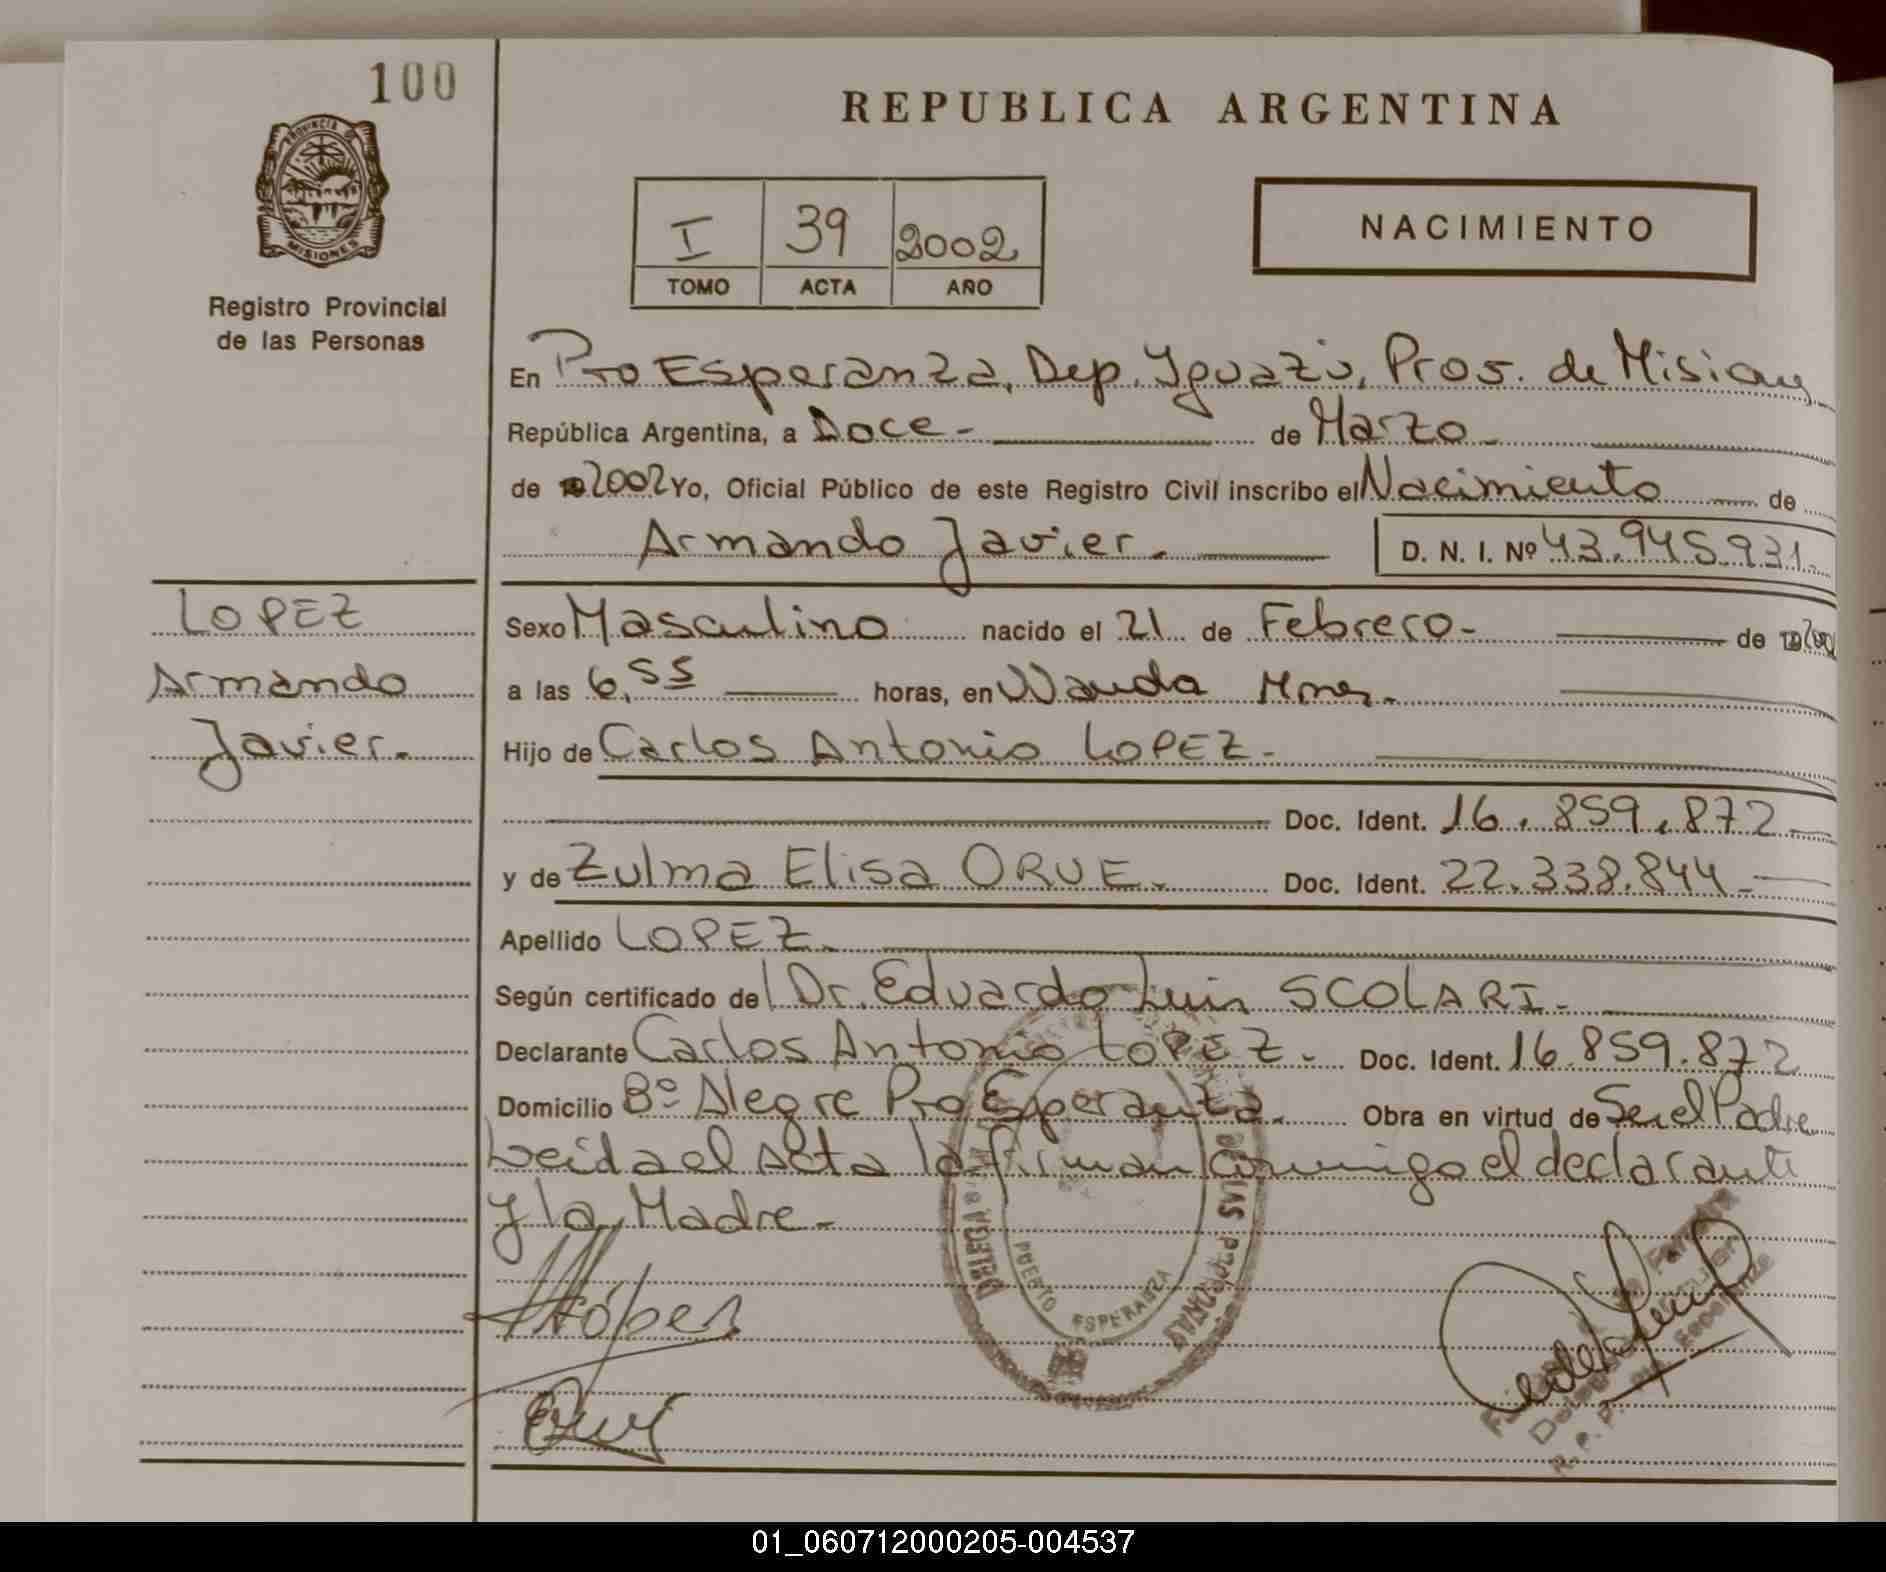 100
REPUBLICA ARGENTINA
PROVINCIA DE
MISIONES
I 39 2002
TOMO ACTA AÑO
NACIMIENTO
Registro Provincial
de las Personas
En Pto Esperanza, Dep. Iguazú, Prov. de Misiones
República Argentina, a Doce - de Marzo -
de 2002 Yo, Oficial Público de este Registro Civil inscribo el Nacimiento de
Armando Javier. D. N. I. Nº 43.945.931.
LOPEZ
Armando
Javier.
Sexo Masculino nacido el 21 de Febrero - de
a las 6,55 horas, en Wanda Mnes.
Hijo de Carlos Antonio LOPEZ -
Doc. Ident. 16.859.872
y de Zulma Elisa ORUE. Doc. Ident. 22.338.844
Apellido LOPEZ.
Según certificado del Dr. Eduardo Luis SCOLARI -
Declarante Carlos Antonio LOPEZ. Doc. Ident. 16.859.872
Domicilio Bº Alegre Pto Esperanza. Obra en virtud de Ser el Padre
Leida el Acta la firman conmigo el declarante
y la Madre -
PUERTO ESPERANZA
01_060712000205-004537